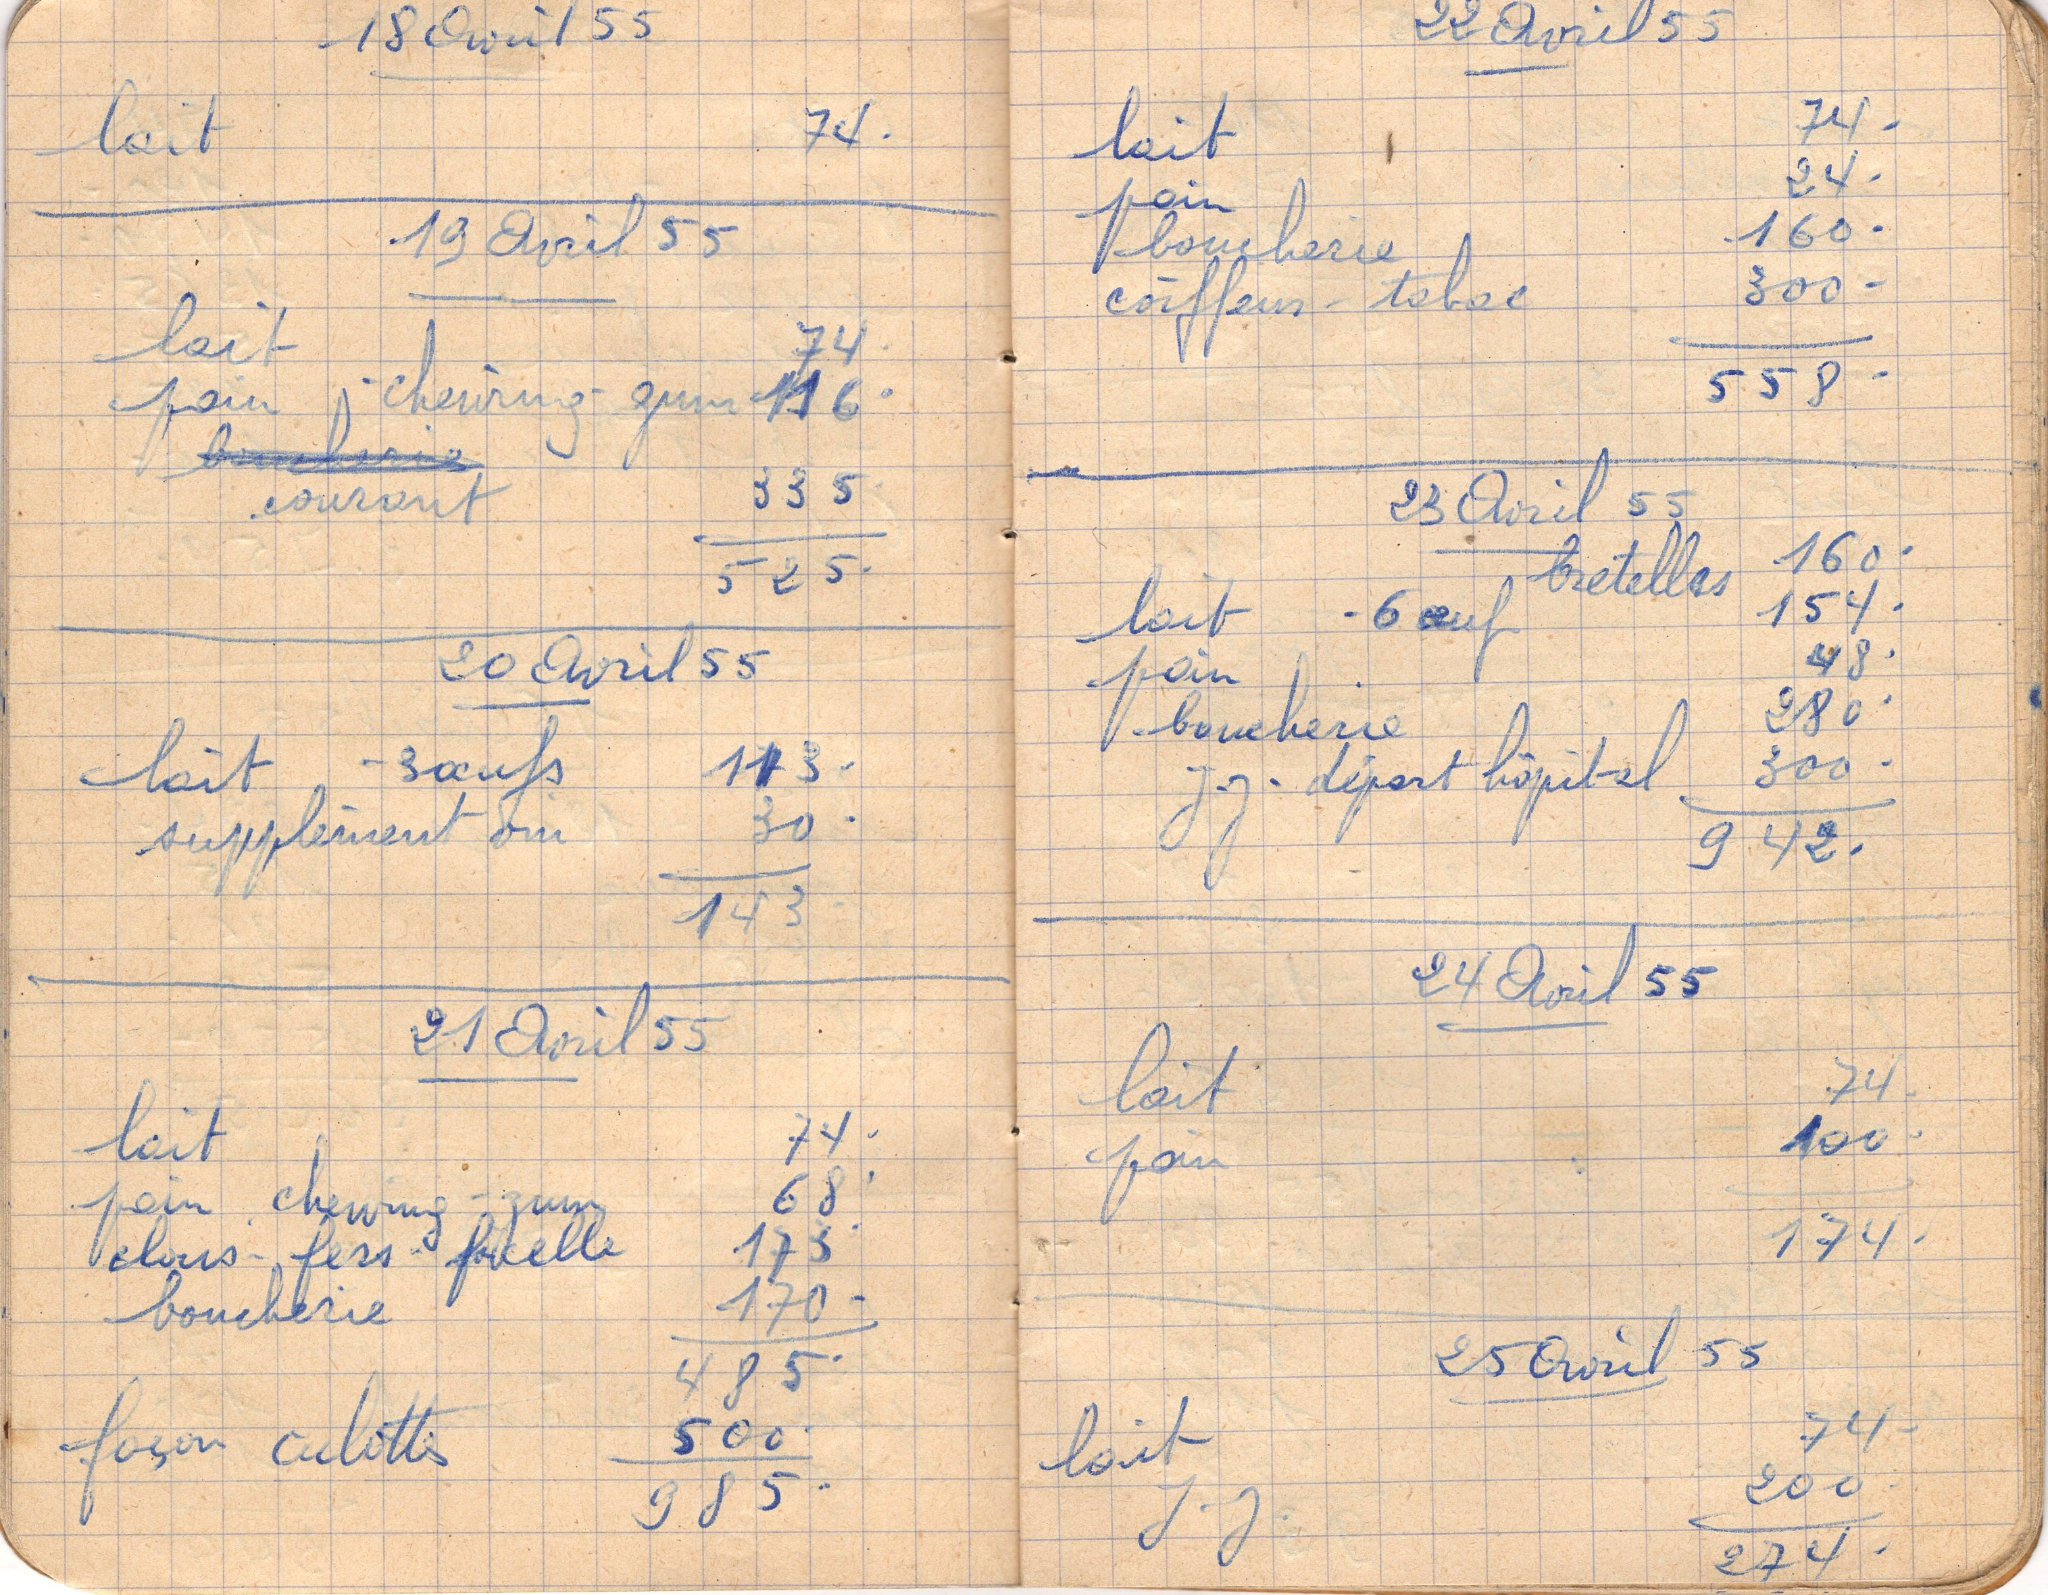 18 Avril 55
lait 74.
19 Avril 55
lait 74.
pain - chewing-gum 116.
boucherie
courant 335.
525.
20 Avril 55
lait - 3 œufs 113.
supplément vin 30.
143.
21 Avril 55
lait 74.
pain chewing-gum 68.
clous - fers - ficelle 173.
boucherie 170.
485.
façon culottes 500.
985.
22 Avril 55
lait 74.
pain 24.
boucherie 160.
coiffeur - tabac 300.
558.
23 Avril 55
bretelles 160.
lait - 6 œuf 154.
pain 48.
boucherie 280.
J.J. départ hôpital 300.
942.
24 Avril 55
lait 74.
pain 100.
174.
25 Avril 55
lait 74.
J.J. 200.
274.